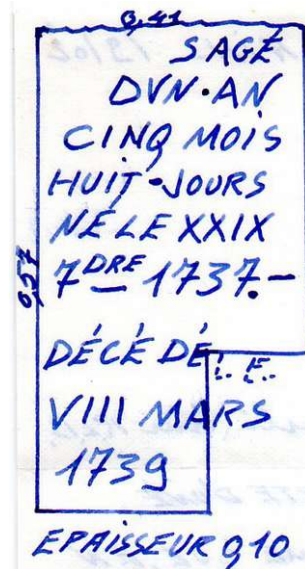 0,41
SAGÉ
DVN·AN
CINQ MOIS
HUIT-JOURS
NÉ LE XXIX
7DRE 1737.-
0,57
DÉCÉDÉ
L E
VIII MARS
1739
EPAISSEUR 0,10